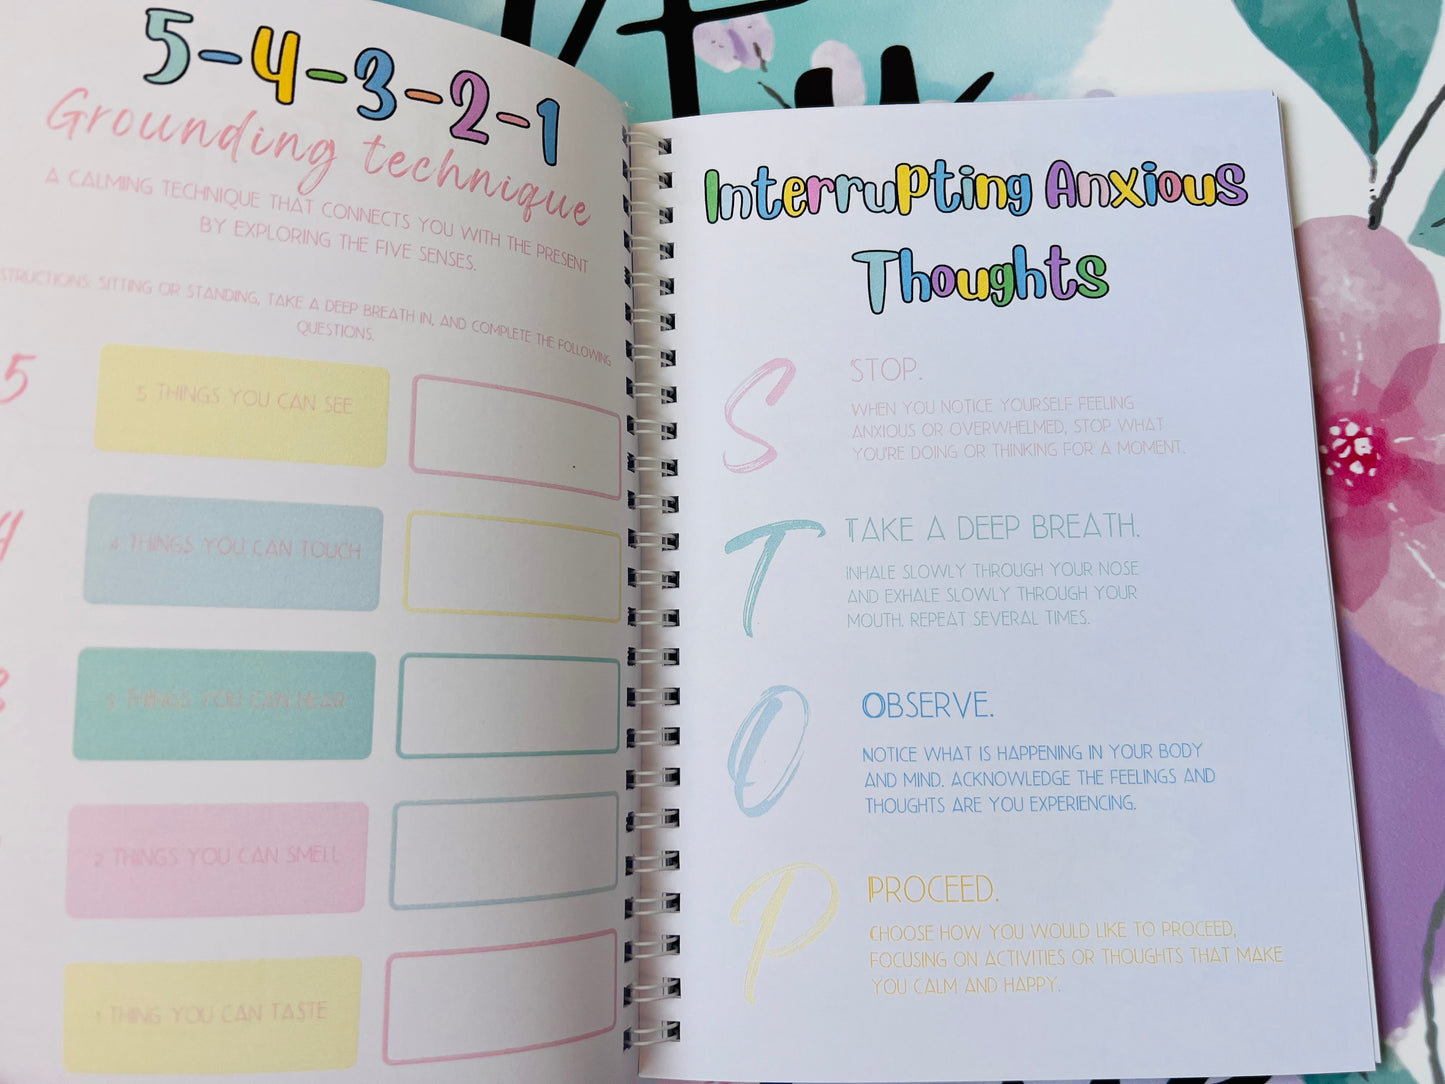 5-4-3-2-1
Grounding technique
A CALMING TECHNIQUE THAT CONNECTS YOU WITH THE PRESENT
BY EXPLORING THE FIVE SENSES.
SITTING OR STANDING, TAKE A DEEP BREATH IN, AND COMPLETE THE FOLLOWING
QUESTIONS.
5
5 THINGS YOU CAN SEE
4
4 THINGS YOU CAN TOUCH
3
3 THINGS YOU CAN HEAR
2 THINGS YOU CAN SMELL
1 THING YOU CAN TASTE
Interrupting Anxious
Thoughts
S
STOP.
WHEN YOU NOTICE YOURSELF FEELING
ANXIOUS OR OVERWHELMED, STOP WHAT
YOU'RE DOING OR THINKING FOR A MOMENT.
T
TAKE A DEEP BREATH.
INHALE SLOWLY THROUGH YOUR NOSE
AND EXHALE SLOWLY THROUGH YOUR
MOUTH. REPEAT SEVERAL TIMES.
O
OBSERVE.
NOTICE WHAT IS HAPPENING IN YOUR BODY
AND MIND. ACKNOWLEDGE THE FEELINGS AND
THOUGHTS ARE YOU EXPERIENCING.
P
PROCEED.
CHOOSE HOW YOU WOULD LIKE TO PROCEED,
FOCUSING ON ACTIVITIES OR THOUGHTS THAT MAKE
YOU CALM AND HAPPY.